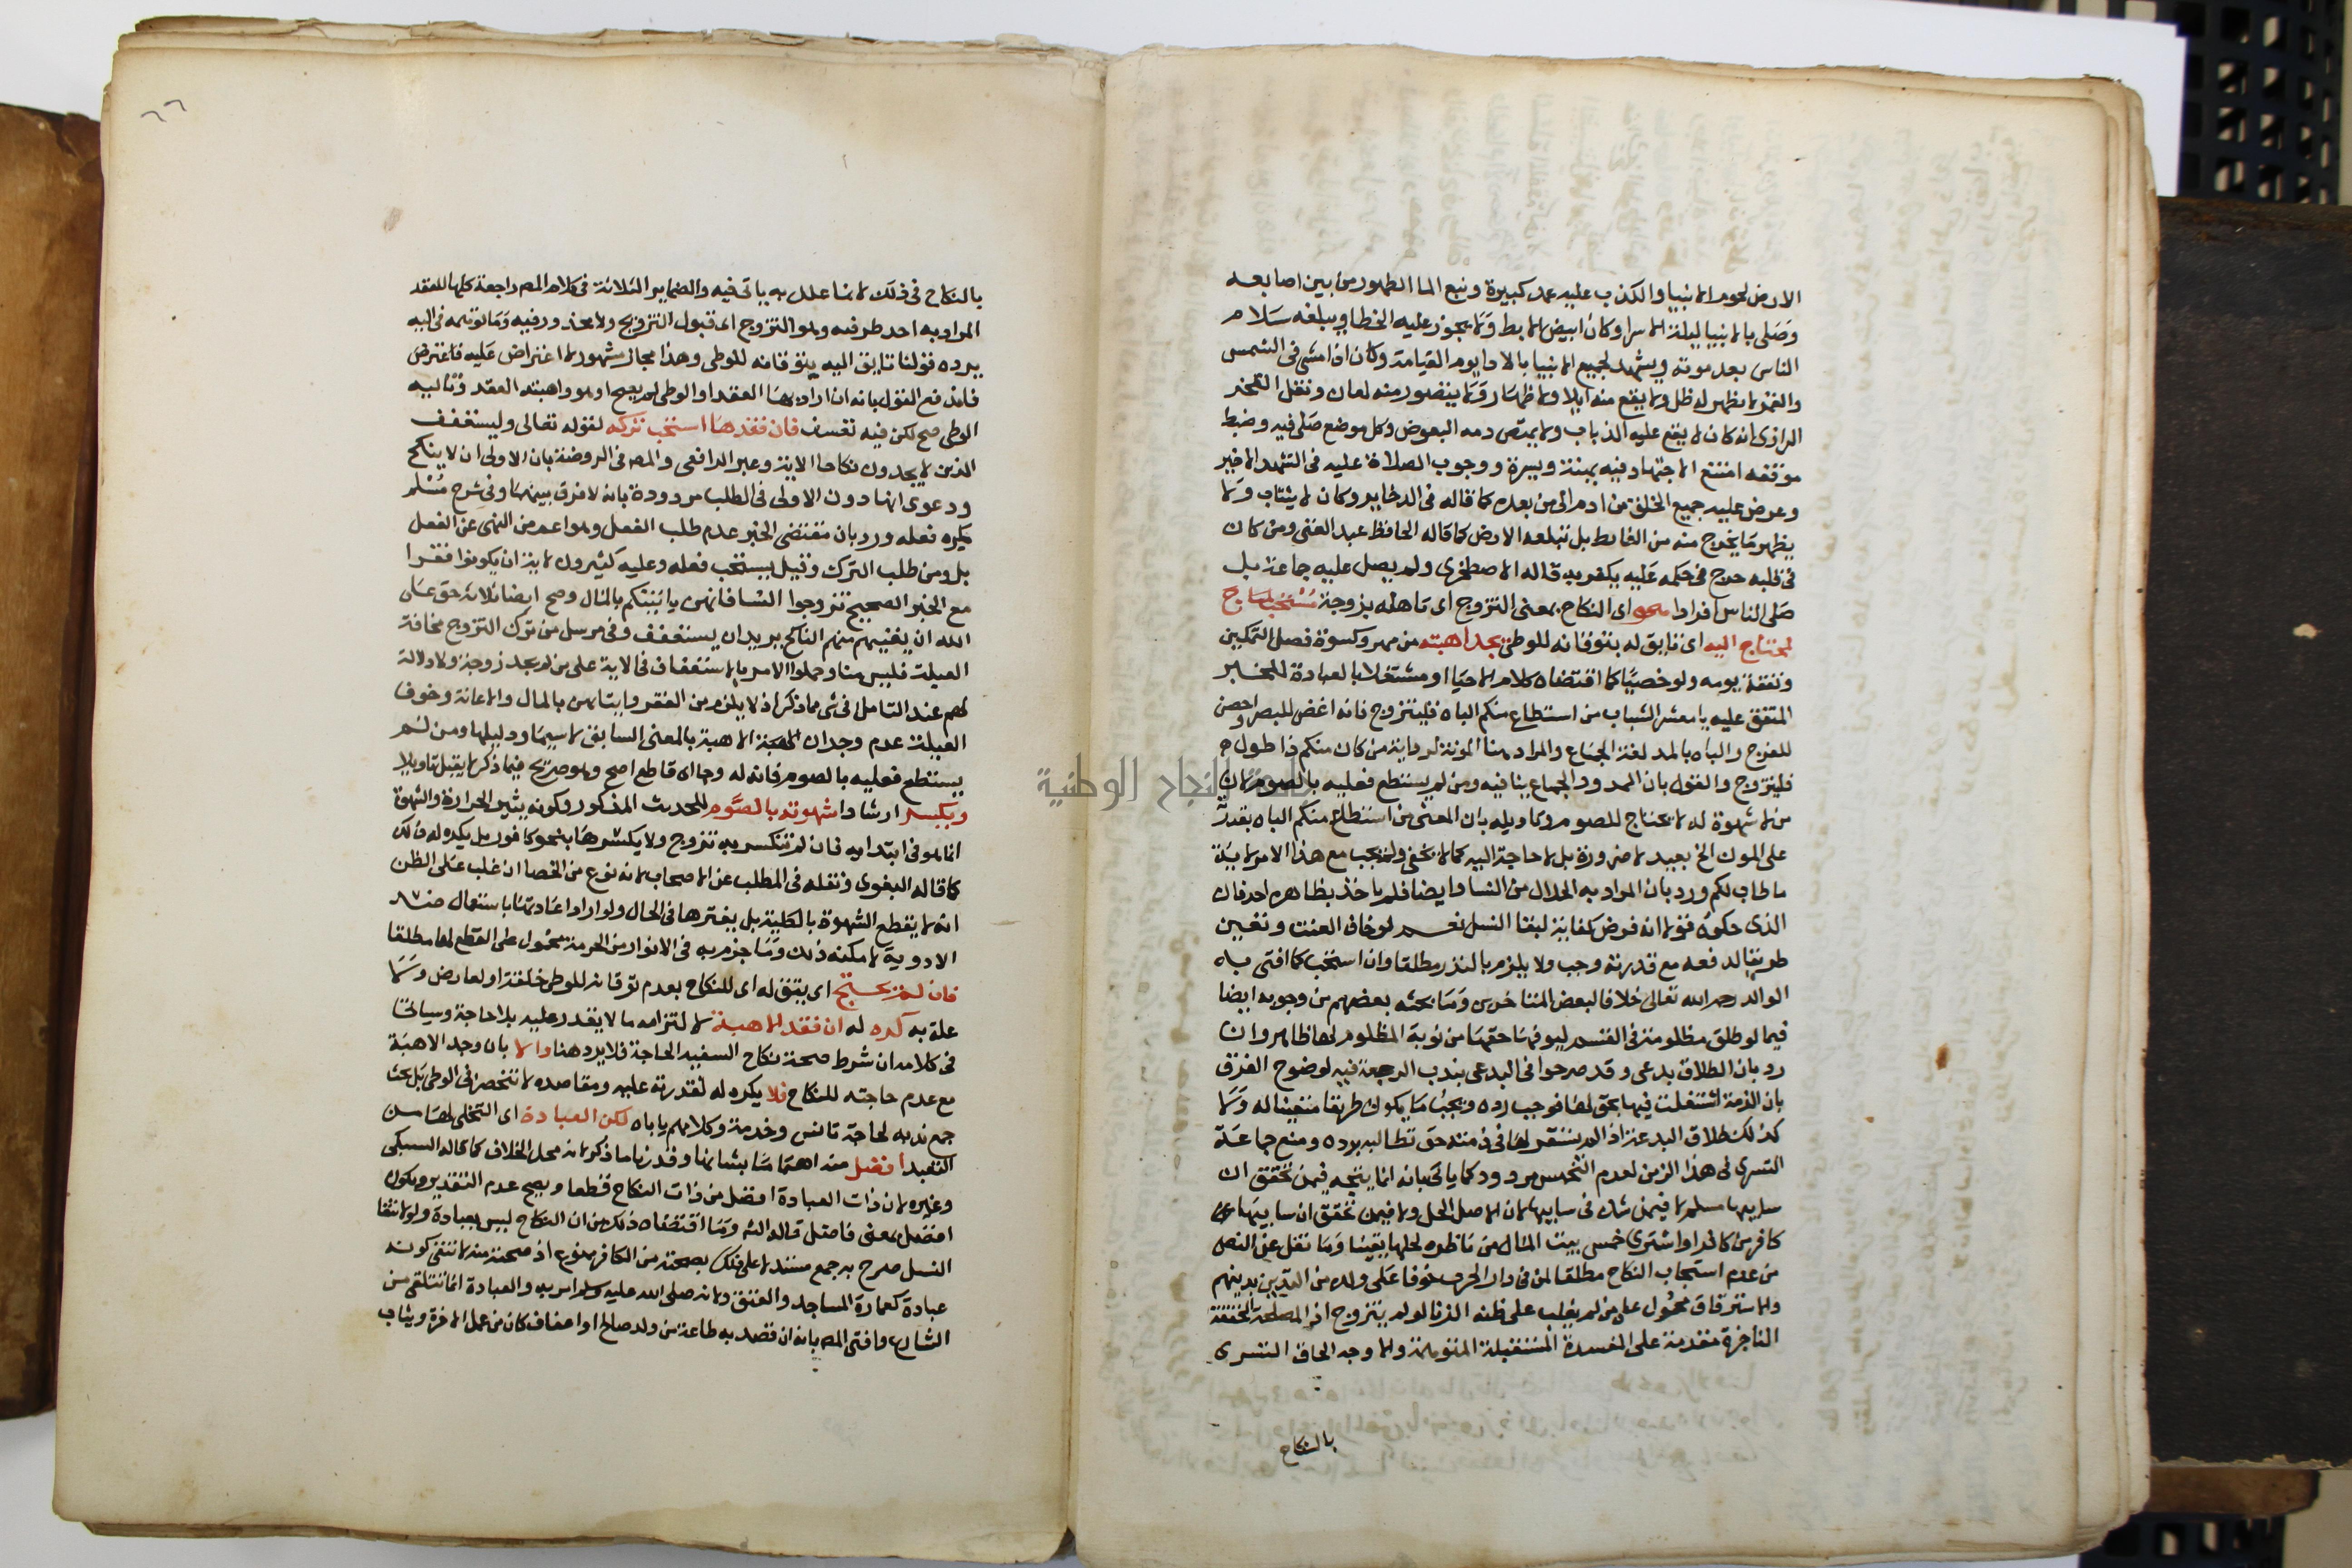 الارض لحوم الانبيا والكذب عليه عمد كبيرة ونبع الما الطهور من بين اصابعه
وصلى بالانبيا ليلة الاسرا وكان ابيض الابط ولا يجوز عليه الخطا ويبلغه سلام
الناس بعد موته ويشهد لجميع الانبيا بالادا يوم القيامة وكان اذا مشى فى الشمس
والقمر لا يظهر له ظل ولا يقع منه ايلا ولا ظهار ولا يتصور منه لعان ونقل الفخر
الرازى انه كان لا يقع عليه الذباب ولا يمتص دمه البعوض وكل موضع صلى فيه وضبط
موقفه امتنع الاجتهاد فيه يمنة ويسرة ووجوب الصلاة عليه فى التشهد الاخير
وعرض عليه جميع الخلق من ادم الى من بعده كما قاله فى الدخاير وكان لا يتثاب ولا
يظهر ما يخرج منه من الغايط بل تبلعه الارض كما قاله الحافظ عبد الغنى ومن كان
فى قلبه حرج فى حكمه عليه يكفر به قاله الاصطخرى ولم يصل عليه جماعة بل
صلى الناس افرادا هو اى النكاح بمعنى التزوج اى تاهله بزوجة مستحب
لمحتاج اليه اى تايق له بتوقانه للوطى يجد اهبته من مهر وكسوة فصل التمكين
ونفقة يومه ولو خصيا كما اقتضاه كلام الاحيا او مشتغلا بالعبادة للخبر
المتفق عليه يا معشر الشباب من استطاع منكم الباه فليتزوج فانه اغض للبصر واحصن
للفرج والباه بالمد لغة الجماع والمراد هنا المونة لرواية من كان منكم ذا طول
فليتزوج والقول بان الممدود الجماع ينافيه ومن لم يستطع فعليه بالصوم لان
من لا شهوة له لا يحتاج للصوم وتاويله بان المعنى من استطاع منكم الباه بقدرته
على المون الخ بعيد لا ضرورة بل لا حاجة اليه كما لا يخفى ولم يجب مع هذا الامر لاية
ما طاب لكم ورد بان المراد به الحلال من النسا وايضا فلم ياخذ بظاهره احد فان
الذى حكوه قولا انه فرض كفاية لبقا النسل نعم لو خاف العنت وتعين
طريقا لدفعه مع قدرته وجب ولا يلزم بالنذر مطلقا وان استحب كما افتى به
الوالد رحمه الله تعالى خلافا لبعض المتاخرين وما بحثه بعضهم من وجوبه ايضا
فيما لو طلق مظلومة فى القسم ليوفيها حقها من نوبة المظلوم لها ظاهر وان
رد بان الطلاق بدعى وقد صرحوا فى البدعى بندب الرجعة فيه لوضوح الفرق
بان الذمة اشتغلت فيها بحق لها فوجب رده ويجب ما يكون طريقا متعينا له ولا
كذلك طلاق البدعة اذ لم يستقر لها فى ذمته حق تطالبه برده ومنع جماعة
التسرى فى هذا الزمن لعدم التخميس مردود كما ياتى بانه انما يتجه فيمن تحقق ان
سابيها مسلم لا فيمن شك فى سابيها لان الاصل الحل ولا فيمن تحقق ان سابيها
كافر من كافر او اشترى خمس بيت المال من ناظره لحلها يقينا وما نقل عن النص
من عدم استحباب النكاح مطلقا لمن فى دار الحرب خوفا على ولده من التدين بدينهم
والاسترقاق محمول على من لم يغلب على ظنه الزنا لو لم يتزوج اذ المصلحة المحققة
الناجزة مقدمة على المفسدة المستقبلة المتوهمة والاوجه الحاق التسرى
بالنكاح
٦٦
بالنكاح فى ذلك لان ما علل به ياتى فيه والضماير الثلاثة فى كلام المص راجعة كلها للعقد
المراد به احد طرفيه وهو التزوج اى قبول التزويج ولا محذور فيه وما توهمه فى اليه
يرده قولنا تايق اليه بتوقانه للوطى وهذا مجاز مشهور لا اعتراض عليه فاعترض
فاندفع القول بانه ان اراد بهما العقد او الوطى لم يصح او هو واهبته العقد وباليه
الوطى صح لكن فيه تعسف فان فقدها استحب تركه لقوله تعالى وليستعفف
الذين لا يجدون نكاحا الاية وعبر الرافعى والمص فى الروضة بان الاولى ان لا ينكح
ودعوى انها دون الاولى فى الطلب مردودة بانه لا فرق بينهما وفى شرح مسلم
يكره فعله ورد بان مقتضى الخبر عدم طلب الفعل وهو اعم من النهى عن الفعل
بل ومن طلب الترك وقيل يستحب فعله وعليه كثيرون لاية ان يكونوا فقرا
مع الخبر الصحيح تزوجوا النسا فانهن ياتينكم بالمال وصح ايضا ثلاثة حق على
الله ان يغنيهم منهم الناكح يريد ان يستعفف وفى مرسل من ترك التزوج مخافة
العيلة فليس منا وحملوا الامر بالاستعفاف فى الاية على من لم يجد زوجة ولا دلالة
لهم عند التامل فى شى مما ذكر اذ لا يلزم من الفقر وايتاهن بالمال والاعانة وخوف
العيلة عدم وجدان الاهبة بالمعنى السابق لا سيما ودليلها ومن لم
يستطع فعليه بالصوم فانه له وجا اى قاطع اصح وهو صريح فيما ذكر لا يقبل تاويلا
ويكسر ارشادا شهوته بالصوم للحديث المذكور وكونه يثير الحرارة والشهوة
انما هو فى ابتدايه فان لم تنكسر به تزوج ولا يكسرها بنحو كافور بل يكره له ذلك
كما قاله البغوى ونقله فى المطلب عن الاصحاب لانه نوع من الخصا ان غلب على الظن
انه لا يقطع الشهوة بالكلية بل يفترها فى الحال ولو اراد اعادتها باستعمال ضد
الادوية لا مكنه ذلك وما جزم به فى الانوار من الحرمة محمول على القطع لها مطلقا
فان لم يحتج اى يتق له اى للنكاح بعدم توقانه للوطى خلقة او لعارض ولا
علة به كره له ان فقد الاهبة لالتزامه ما لا يقدر عليه بلا حاجة وسياتى
فى كلامه ان شرط صحة نكاح السفيه الحاجة فلا يرد هنا والا بان وجد الاهبة
مع عدم حاجته للنكاح فلا يكره له لقدرته عليه ومقاصده لا تنحصر فى الوطى بل بحث
جمع ندبه لحاجة تانس وخدمة وكلامهم ياباه لكن العبادة اى التخلى لها من
التعبد افضل منه اهتماما بشانها وقدرنا ما ذكر لانه محل الخلاف كما قاله السبكى
وغيره لان ذات العبادة افضل من ذات النكاح قطعا ويصح عدم التقدير ويكون
افضل بمعنى فاضل قاله الش وما اقتضاه ذلك من ان النكاح ليس بعبادة ولو لابتغا
النسل صرح به جمع مستدلا على ذلك بصحته من الكافر ممنوع اذ صحته منه لا تنفى كونه
عبادة كعمارة المساجد والعتق ولانه صلى الله عليه وسلم امر به والعبادة انما تتلقى من
الشارع وافتى المص بانه ان قصد به طاعة من ولد صالح او اعفاف كان من عمل الاخرة ويثاب